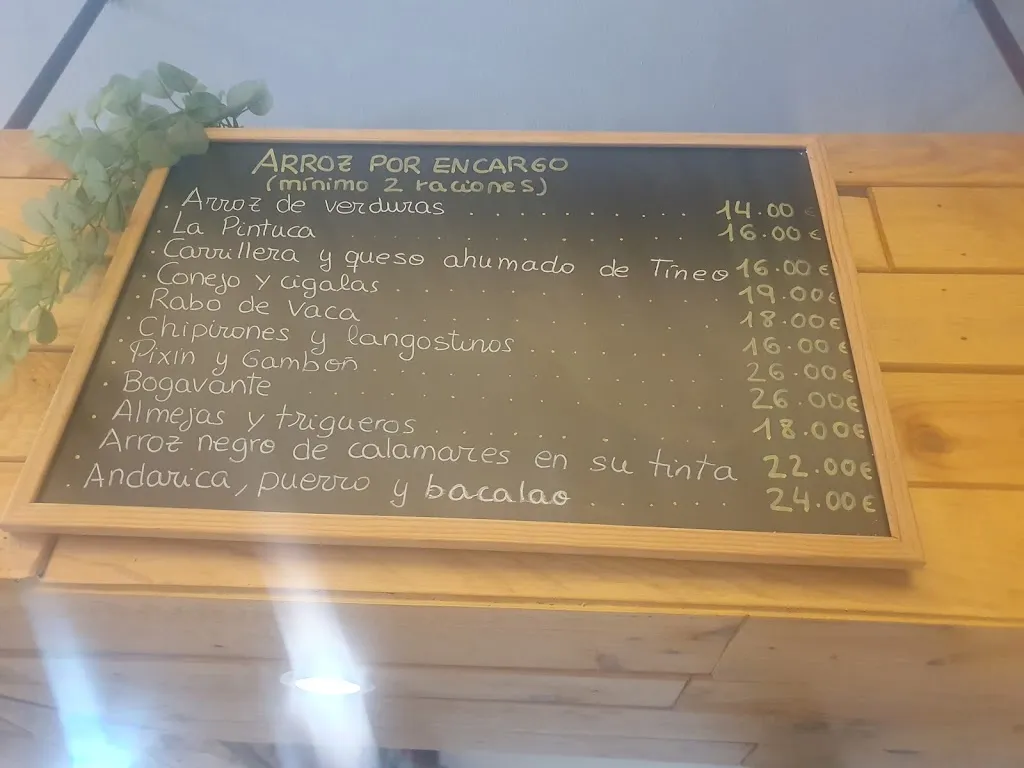 ARROZ POR ENCARGO
(mínimo 2 raciones)
. Arroz de verduras . . . . . . . . . . 14.00 €
. La Pintuca . . . . . . . . . . 16.00 €
. Carrillera y queso ahumado de Tineo 16.00 €
. Conejo y cigalas . . . . . . . . . . 19.00€
. Rabo de vaca . . . . . . . . . . 18.00€
. Chipirones y langostinos . . . . . . . 16.00 €
. Pixin y Gambon . . . . . . . . . . 26.00€
. Bogavante . . . . . . . . . . 26.00€
. Almejas y trigueros . . . . . . . . 18.00€
. Arroz negro de calamares en su tinta 22.00€
. Andarica, puerro y bacalao . . . . . . 24.00€